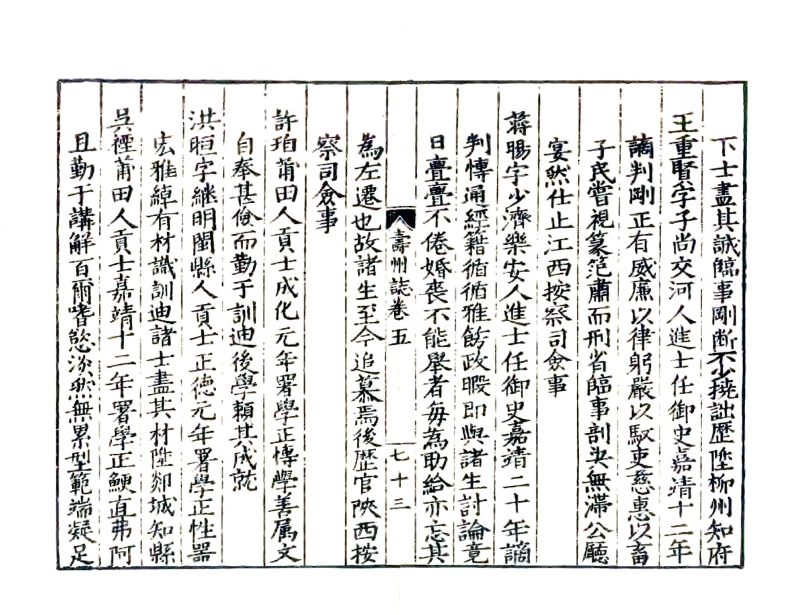 下士盡其誠臨事剛断不少撓詘歴陞柳州知府
王重賢字子尚交河人進士任御史嘉靖十二年
謫判剛正有威廉以律躬嚴以馭吏慈惠以畜
子民嘗視篆范肅而刑省臨事剖决無滯公廳
宴然仕止江西按察司僉事
蔣暘字少濟樂安人進士任御史嘉靖二十年謫
判慱通經籍循循雅飭政暇即與諸生討論竟
日亹亹不倦婚喪不能舉者每為助給亦忘其
壽州誌卷五
七十三
為左遷也故諸生至今追慕焉後歴官陜西按
察司僉事
許珀莆田人貢士成化元年署學正慱學善属文
自奉甚儉而勤于訓迪後學頼其成就
洪晅字継明閩縣人貢士正德元年署學正性器
宏雅綽有材識訓迪諸士盡其材陞郯城知縣
吳禋莆田人貢士嘉靖十二年署學正鯁直弗阿
且勤于講解百爾嗜慾淡然無累型範端凝足